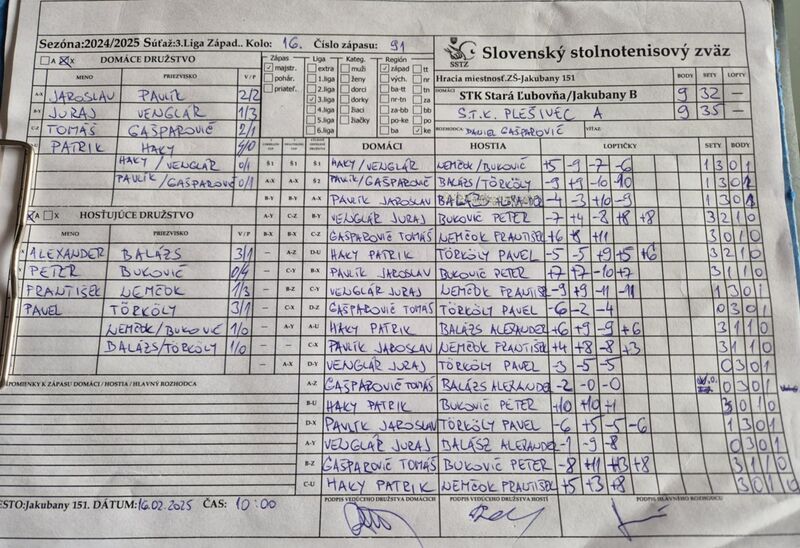 Sezóna:2024/2025 Súťaž:3.Liga Západ.. Kolo: 16. Číslo zápasu: 91
Slovenský stolnotenisový zväz
SSTZ
A X DOMÁCE DRUŽSTVO
MENO PRIEZVISKO V/P
A-X JAROSLAV PAVLÍK 2/2
B-Y JURAJ VENGLÁR 1/3
C-Z TOMÁŠ GAŠPAROVIČ 2/1
PATRIK HAKY
HAKY/VENGLÁR 0/1
PAVLÍK/GAŠPAROVIČ 0/1
A X HOSŤUJÚCE DRUŽSTVO
MENO PRIEZVISKO V/P
ALEXANDER BALÁZS 3/1
PETER BUKOVIČ 0/4
FRANTIŠEK NEMČOK 1/3
PAVEL TÖRKÖLY 3/1
NEMČOK/BUKOVIČ 1/0
BALÁZS/TÖRKÖLY 1/0
Zápas Liga Kategória Región
majstr. extra muži západ tt
pohár. 1.liga ženy vých. nr
priateľ. 2.liga dorci ba tn
3.liga dorky nr-tn za
4.liga žiaci za-bb bb
5.liga žiačky ba-tt po
6.liga po-ke ke
Hracia miestnosť.ZŠ-Jakubany 151 BODY SETY LOPTY
DOMÁCI STK Stará Ľubovňa/Jakubany B 9 32 –
S.T.K. PLEŠIVEC A 9 35 –
ROZHODCA DANIEL GAŠPAROVIČ VÍŤAZ.
DOMÁCI HOSTIA LOPTIČKY SETY BODY
Š1 Š1 Š1 HAKY/VENGLÁR NEMČOK/BUKOVIČ +5 -9 -7 -6 1 3 0 1
A-X A-X Š2 PAVLÍK/GAŠPAROVIČ BALÁZS/TÖRKÖLY -9 +9 -10 -10 1 3 0 1
B-Y B-Y A-X PAVLÍK JAROSLAV BALÁZS ALEXANDER -4 -3 +10 -9 1 3 0 1
A-Y C-Z B-Y VENGLÁR JURAJ BUKOVIČ PETER -7 +4 -8 +8 +8 3 2 1 0
B-X B-X C-Z GAŠPAROVIČ TOMÁŠ NEMČOK FRANTIŠEK +6 +8 +11 3 0 1 0
– A-Z D-U HAKY PATRIK TÖRKÖLY PAVEL -5 -5 +9 +5 +6 3 2 1 0
– C-Y B-X PAVLÍK JAROSLAV BUKOVIČ PETER +7 +7 -10 +7 3 1 1 0
– B-Z C-Y VENGLÁR JURAJ NEMČOK FRANTIŠEK -9 +9 -11 -11 1 3 0 1
– C-X D-Z GAŠPAROVIČ TOMÁŠ TÖRKÖLY PAVEL -6 -2 -4 0 3 0 1
– A-Y A-U HAKY PATRIK BALÁZS ALEXANDER +6 +9 -9 +6 3 1 1 0
– – C-X PAVLÍK JAROSLAV NEMČOK FRANTIŠEK +4 +8 -8 +3 3 1 1 0
– A-X D-Y VENGLÁR JURAJ TÖRKÖLY PAVEL -3 -5 -5 0 3 0 1
A-Z GAŠPAROVIČ TOMÁŠ BALÁZS ALEXANDER -2 -0 -0 0 3 0 1
B-U HAKY PATRIK BUKOVIČ PETER +10 +10 +1 3 0 1 0
D-X PAVLÍK JAROSLAV TÖRKÖLY PAVEL -6 +5 -5 -6 1 3 0 1
A-Y VENGLÁR JURAJ BALÁSZ ALEXANDER -1 -9 -8 0 3 0 1
B-Z GAŠPAROVIČ TOMÁŠ BUKOVIČ PETER -8 +11 +3 +8 3 1 1 0
C-U HAKY PATRIK NEMČOK FRANTIŠEK +5 +3 +8 3 0 1 0
POMIENKY K ZÁPASU DOMÁCI / HOSTIA / HLAVNÝ ROZHODCA
ESTO:Jakubany 151. DÁTUM: 16.02.2025 ČAS: 10:00
PODPIS VEDÚCEHO DRUŽSTVA DOMÁCICH PODPIS VEDÚCEHO DRUŽSTVA HOSTÍ PODPIS HLAVNÉHO ROZHODCU